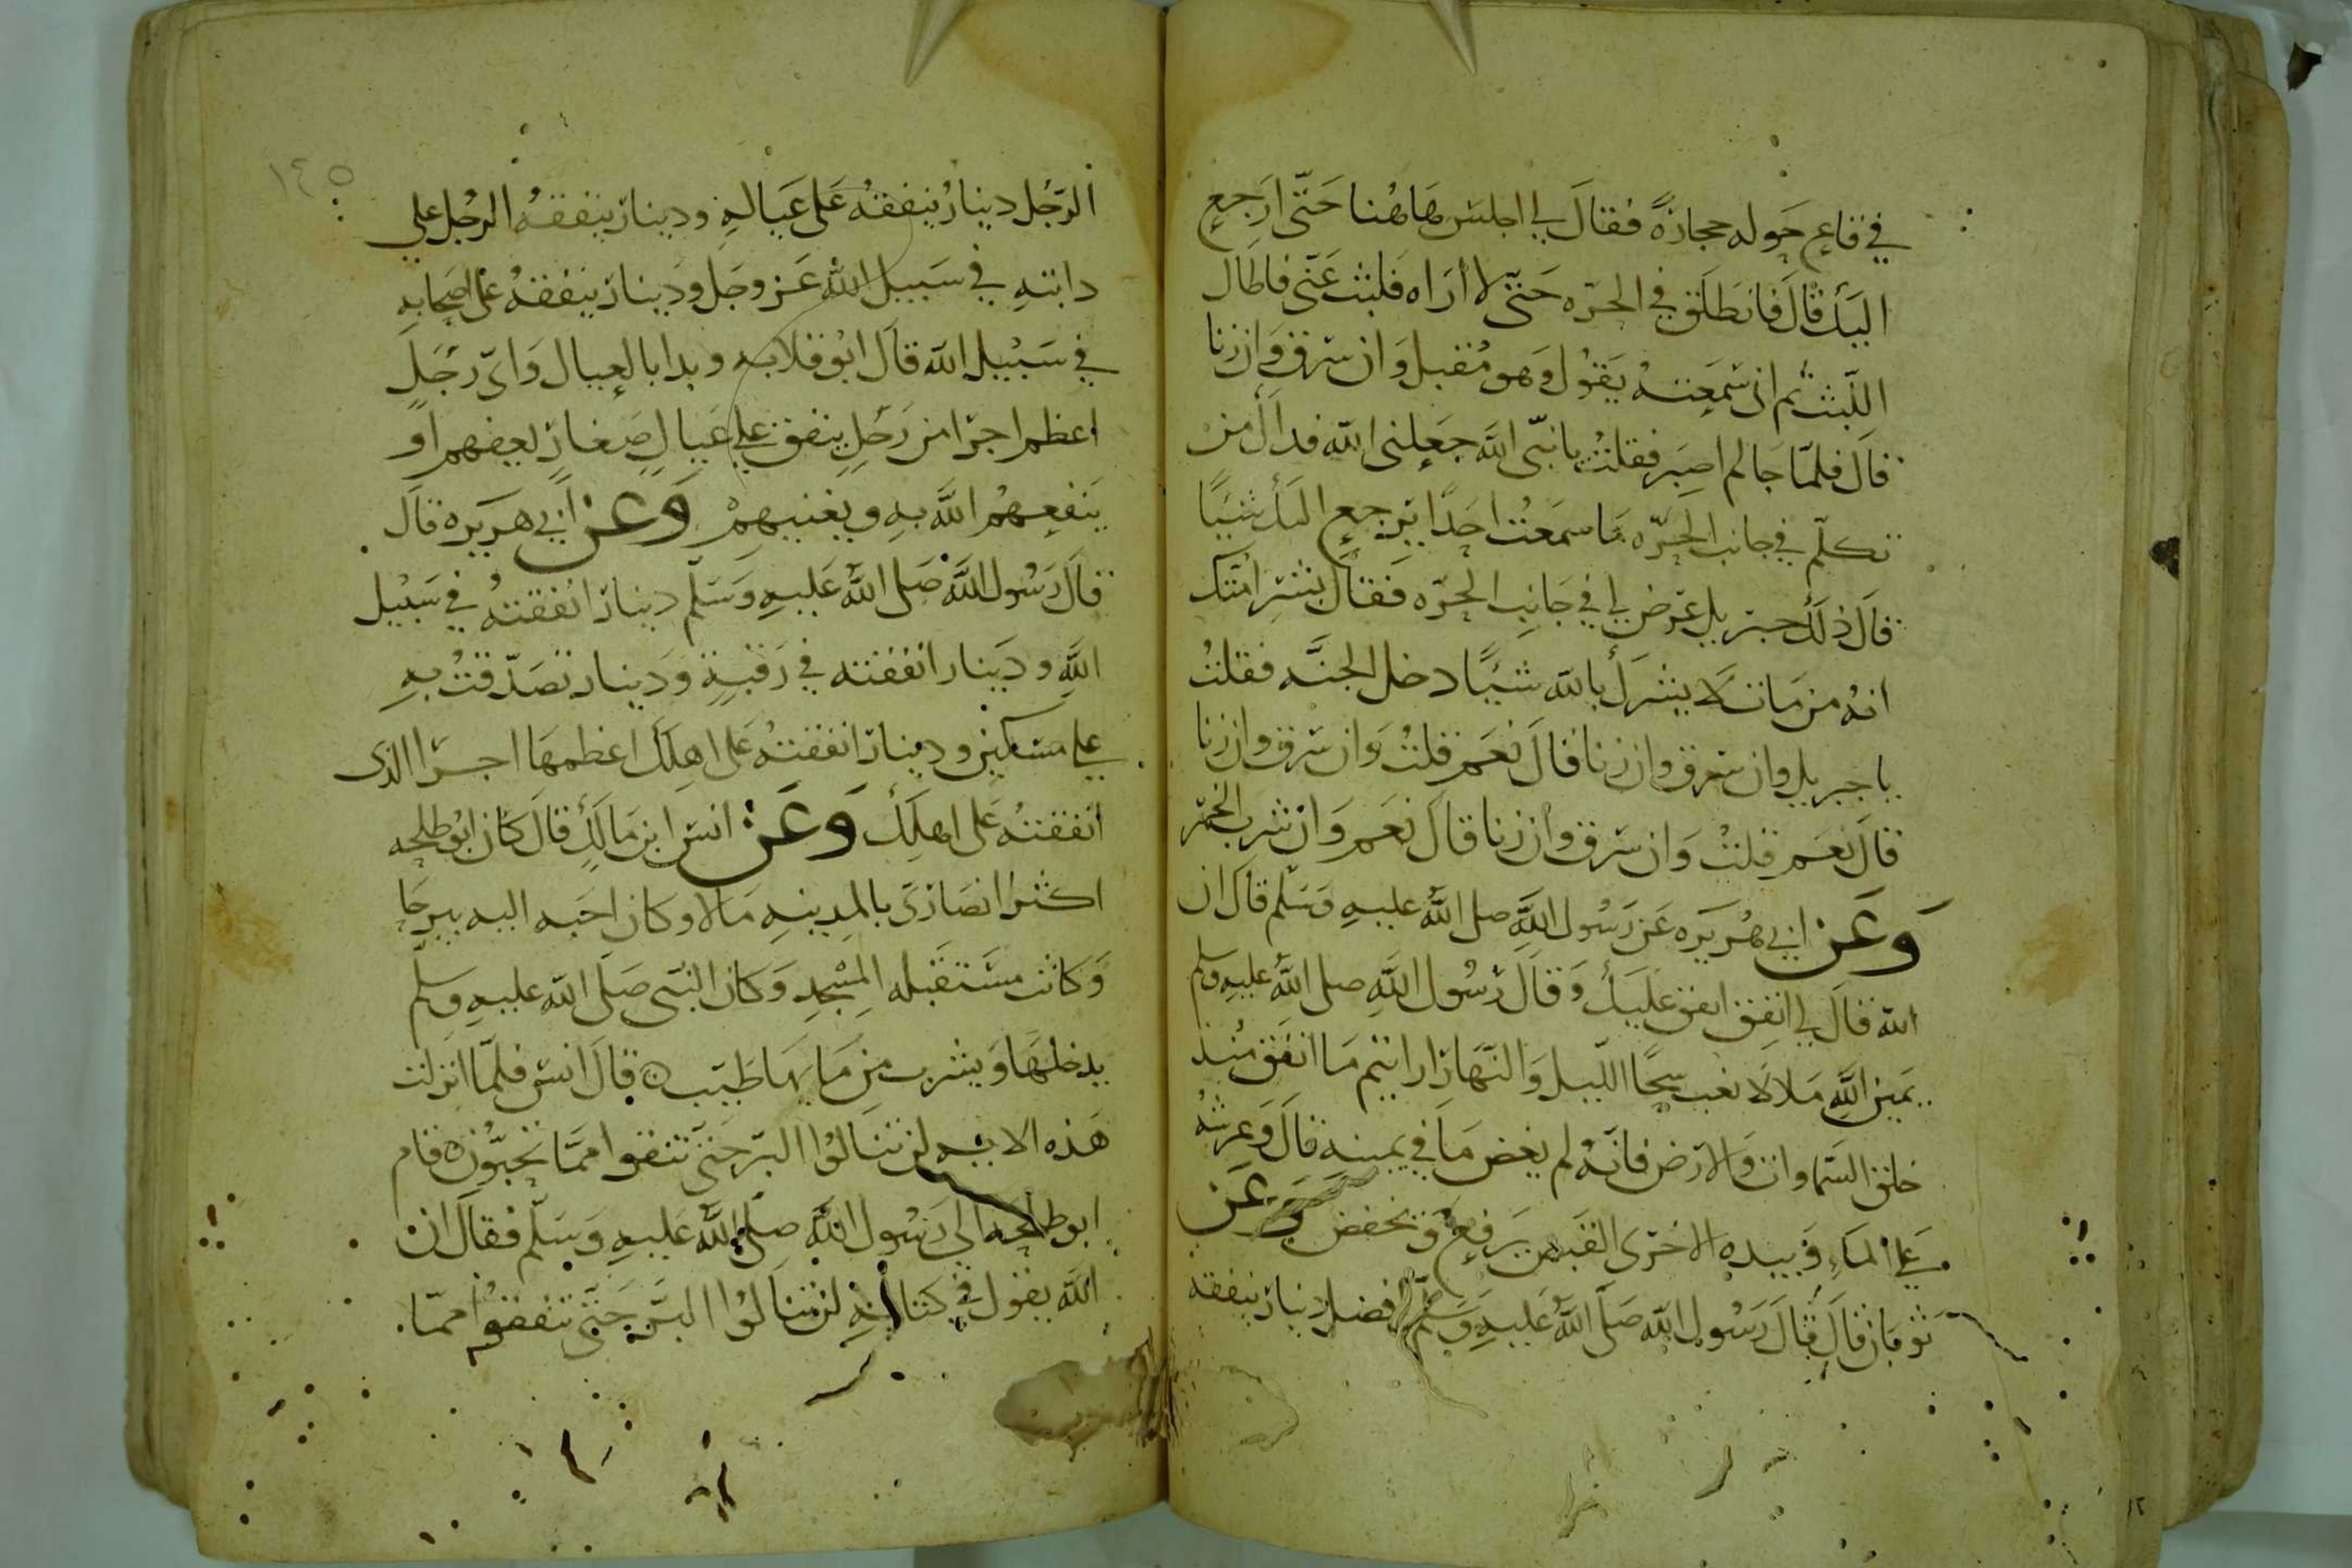 في قاع حوله حجارةً فقالَ لي اجلس هاهُنا حَتّى ارَجع
اليَكَ قالَ فانطَلَق في الحَرّه حَتّى لا أرَاه فَلبث عَنّى فاطال
اللّبث ثم انى سَمِعتهُ يَقوُل وَهو مُقبل وَان سَرق وَان زنا
قالَ فلمّا جَا لم اصِبَر فقلتُ يا نبّى اللَّه جَعلنى اللّه فداكَ مَن
تكلّم في جانب الحَرّه مَا سَمعَتُ احَدًا يرجع اليكَ شيًا
قالَ ذلكَ جبَريل عَرَض لي في جَانِب الحَرّه فَقالَ بَشر امتكَ
انهُ من مَات لا يشركُ باللّه شيًا دخل الجنَّه فقلتُ
يا جبريل وان سَرق وان زنا قالَ نعَم قلتُ وَان سَرق وان زنا
قالَ نعَم قلتُ وَان سَرق وان زنا قالَ نعَم وَان شرب الخَمر
وَعَن ابي هُريَره عَن رَسُول اللَّه صلى اللَّه عليهِ وَسَلّم قالَ ان
اللّه قالَ لي انفِق انفق عَليكَ وَقالَ رَسُول اللَّهِ صلى اللَّه عليهِ وسلم
يَمين اللَّهِ مَلا لَا يغب سحًا اللّيل وَالنّهَار ارايتم مَا انفَق مُنذ
خلق السّماوات وَالارَض فانّهُ لم يغض مَا في يمينه قالَ وَعَرشهُ
عَلى المآء وَبيده الاخرَى القبض يَرفع وَيَخفض وَعَن
ثوبَان قالَ قالَ رَسُول اللّه صَلّى اللَّه عَليهِ وَسَلّم افضل دينار ينفقه
١٤٥
الرّجُل دينارٌ ينفقهُ عَلى عَيالهِ ودينار ينفقهُ الرجُل على
دابتهِ في سَبيل اللَّه عَزوجَل وَدينار ينفقهُ على اصَحابه
في سَبيْل اللّه قالَ ابوُ قلابه وبدا بالعيال وَاىّ رَجَلٍ
اعظم اجرًا من رَجلٍ ينفق على عَيالٍ صغارٍ يعفهم او
يَنفعِهُم اللَّه بهِ ويغنيهمْ وَعَن ابي هريَره قالَ
قالَ رَسُول اللَّه صَلى اللَّه عَليهِ وَسَلّم دينارًا انفقتهُ في سَبيْل
اللَّهِ وَدَينار انفقته في رَقبةٍ وَدَينار تصَدّقتُ بهِ
على مسَكين ودينار انفقتهُ عَلى اهلِكَ اعَظمهَا اجرًا الذى
انفقتهُ عَلى اهلِكَ وَعَن انس ابن مَالكٍ قالَ كان ابوُ طلحه
اكثر انصَارَى بالمدِينهِ مَالا وكان احَبه اليه بيرحَا
وَكانت مستَقبله المِسْجدِ وَكان النبّى صَلّى اللّه عليهِ وسلّم
يدخلهَا وَيشرب مِن مَا بهَا طيّب ه قالَ انس فلمّا انزلت
هَذه الايه لن تنالوُا البرّ حَتىّ تنفقوا ممّا تحبّوُن ه قام
ابو طلحه الى رَسُول اللَّه صَلى اللَّه عَليهِ وَسَلّم فقالَ ان
اللّه يقوُل في كتابهِ لن تنالوُا البرّ حَتّى تنفقوُا ممّا